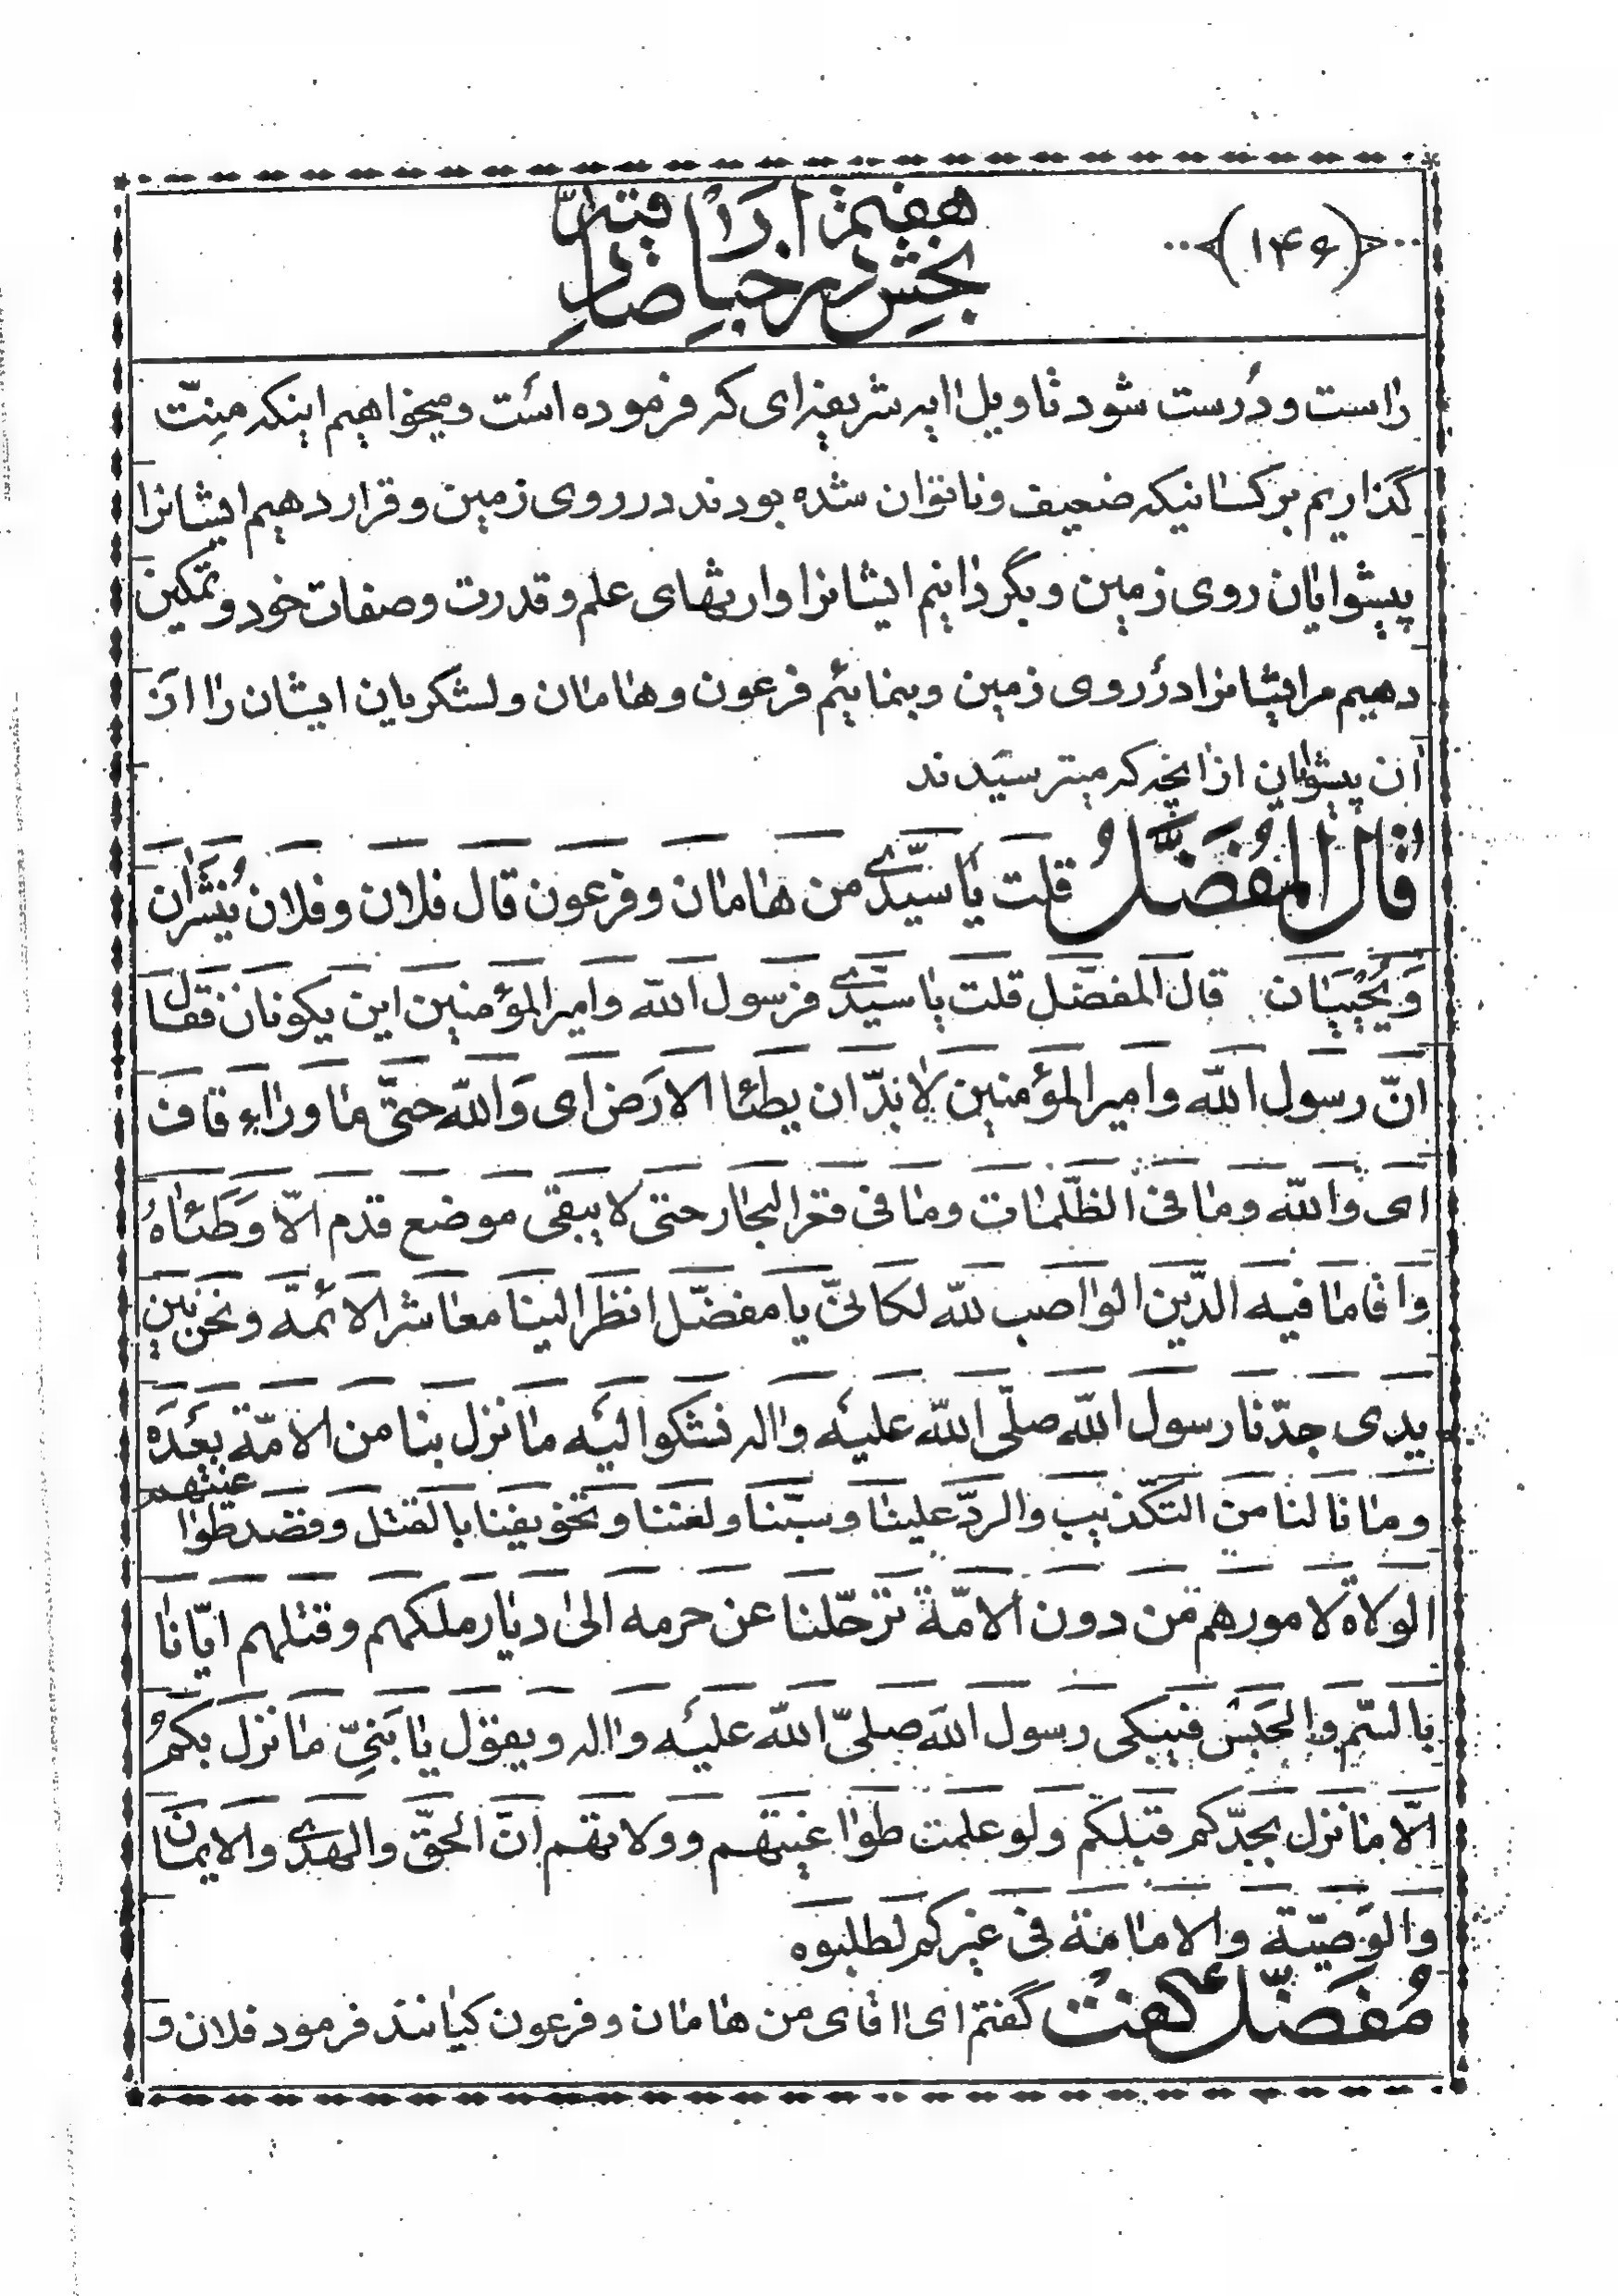 (۱۴۶)
بخش هفتم در اخبار صادقیه
راست و درست شود تاویل ایه شریفه‌ای که فرموده است و میخواهیم اینکه منّت
گذاریم بر کسانیکه ضعیف و ناتوان شده بودند در روی زمین و قرار دهیم ایشانرا
پیشوایان روی زمین و بگردانیم ایشانرا وارثهای علم و قدرت و صفات خود و تمکین
دهیم مرایشانرا در روی زمین و بنمائیم فرعون و هامان و لشکریان ایشان را از
ان پیشوایان از انچه که میترسیدند
قال المُفَضَّلُ قلت یا سیّدی من هامان و فرعون قال فلان و فلان یُنشَران
وَیُحْیَیان قال المفضّل قلت یا سیّدی فرسول الله و امیر المؤمنین این یکونان فقال
انّ رسول الله و امیر المؤمنین لابدّ ان یطئا الارض ای وَالله حتّی ما وراء قاف
ای والله و ما فی الظّلمات و ما فی قعر البحار حتی لا یبقی موضع قدم الّا وَطَئاهُ
و اقاما فیه الدّین الواصب لله لکانّی یا مفضّل انظر الینا معاشر الائمّه و نحن بین
یدی جدّنا رسول الله صلّی الله علیه واله نشکوا الیه ما نزل بنا من الامّة بعدَهُ
و ما نالنا من التکذیب والردّ علینا و سبّنا و لعننا و تخویفنا بالقتل و قصد طوا غیتهم
الولاة لامورهم من دون الامّة ترحّلنا عن حرمه الی دیار ملکهم و قتلهم ایّانا
بالسّم والحبس فیبکی رسول الله صلیّ الله علیه واله و یقول یا بَنِیّ ما نزل بکم
الّا ما نزل بجدّکم قبلکم و لو علمت طوا غیتهم و ولاتهم انّ الحقّ والهدی والایمان
والوصیّة والامامة فی غیرکم لطلبوه
مُفَضّل گفت گفتم ای اقای من هامان و فرعون کیانند فرمود فلان و